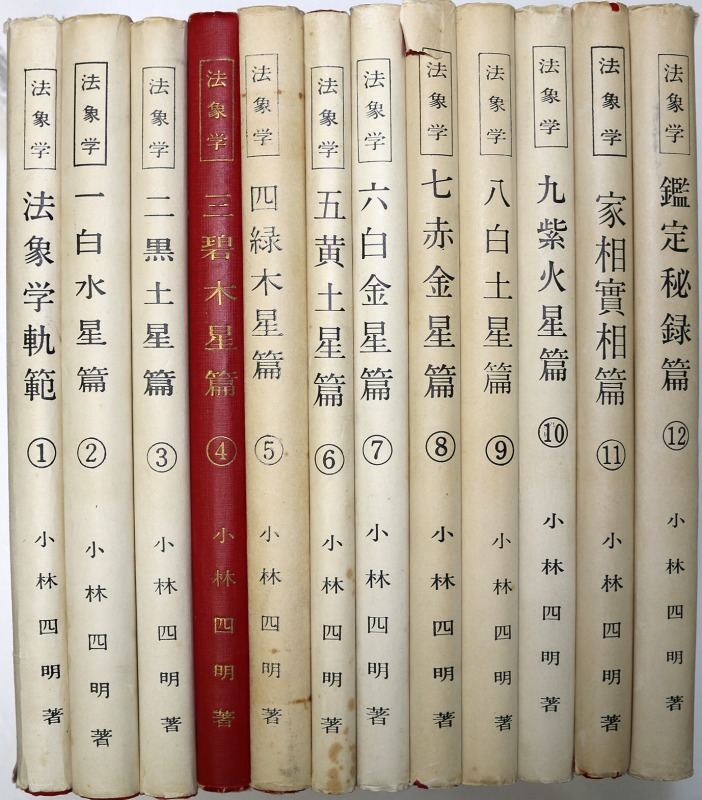 法象学
法象学軌範
①
小林四明著
法象学
一白水星篇
②
小林四明著
法象学
二黒土星篇
③
小林四明著
法象学
三碧木星篇
④
小林四明著
法象学
四緑木星篇
⑤
小林四明著
法象学
五黄土星篇
⑥
小林四明著
法象学
六白金星篇
⑦
小林四明著
法象学
七赤金星篇
⑧
小林四明著
法象学
八白土星篇
⑨
小林四明著
法象学
九紫火星篇
⑩
小林四明著
法象学
家相實相篇
⑪
小林四明著
法象学
鑑定秘録篇
⑫
小林四明著